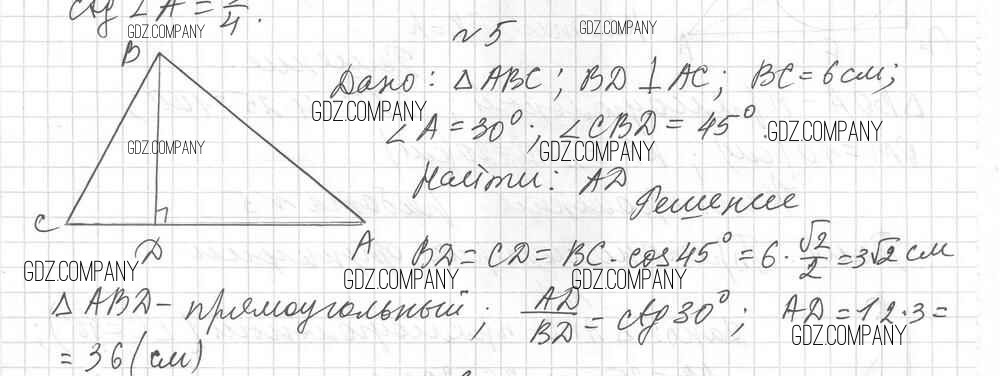 ctg ∠A = 3/4.
GDZ.COMPANY
GDZ.COMPANY
№5
B
Дано: △ABC; BD ⊥ AC; BC = 6 см;
GDZ.COMPANY
∠A = 30°; ∠CBD = 45°.
GDZ.COMPANY
GDZ.COMPANY
GDZ.COMPANY
Найти: AD
Решение
C
D
A
BD = CD = BC · cos 45° = 6 · √2/2 = 3√2 см
GDZ.COMPANY
GDZ.COMPANY
GDZ.COMPANY
△ABD – прямоугольный; AD/BD = ctg 30°; AD = 12·3 =
GDZ.COMPANY
= 36 (см)